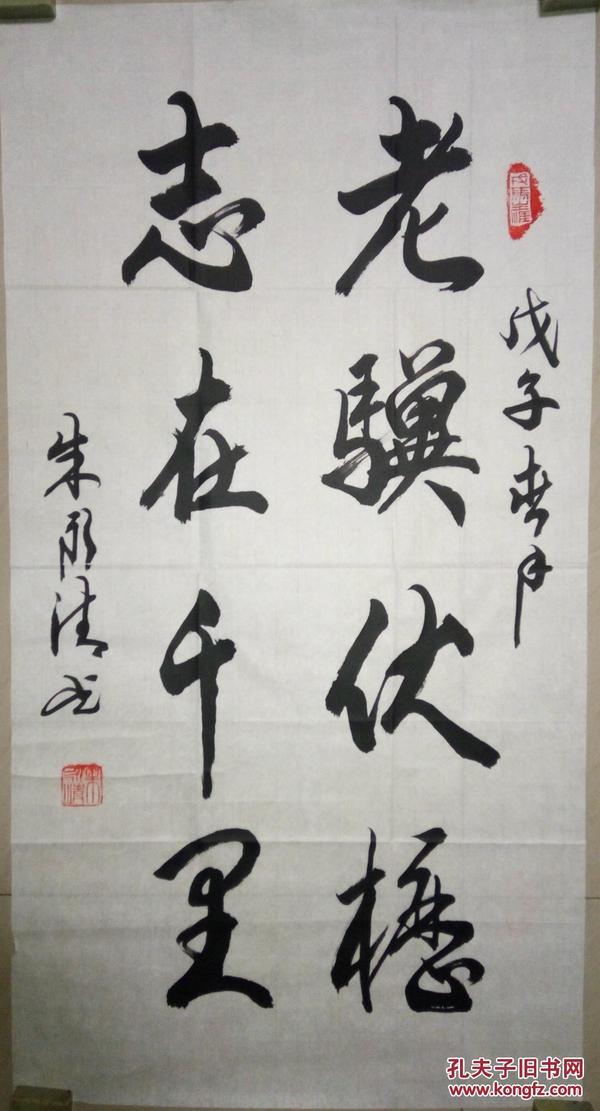 戊子春月
老驥伏櫪
志在千里
朱清书
孔夫子旧书网
www.kongfz.com